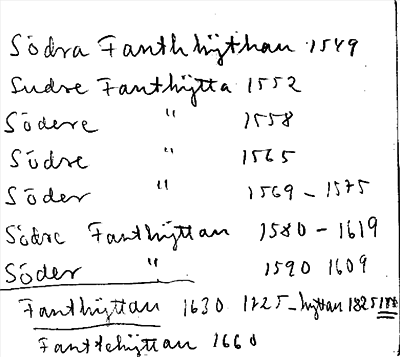 Södra Fanthhijthan 1549
Sudre Fanthijtta 1552
Södere " 1558
Södre " 1565
Söder " 1569 - 1575
Södre Fanthijttan 1580 - 1619
Söder " 1590 1609
Fanthijttan 1630 1725 - hyttan 1825
Fanttehijttan 1660